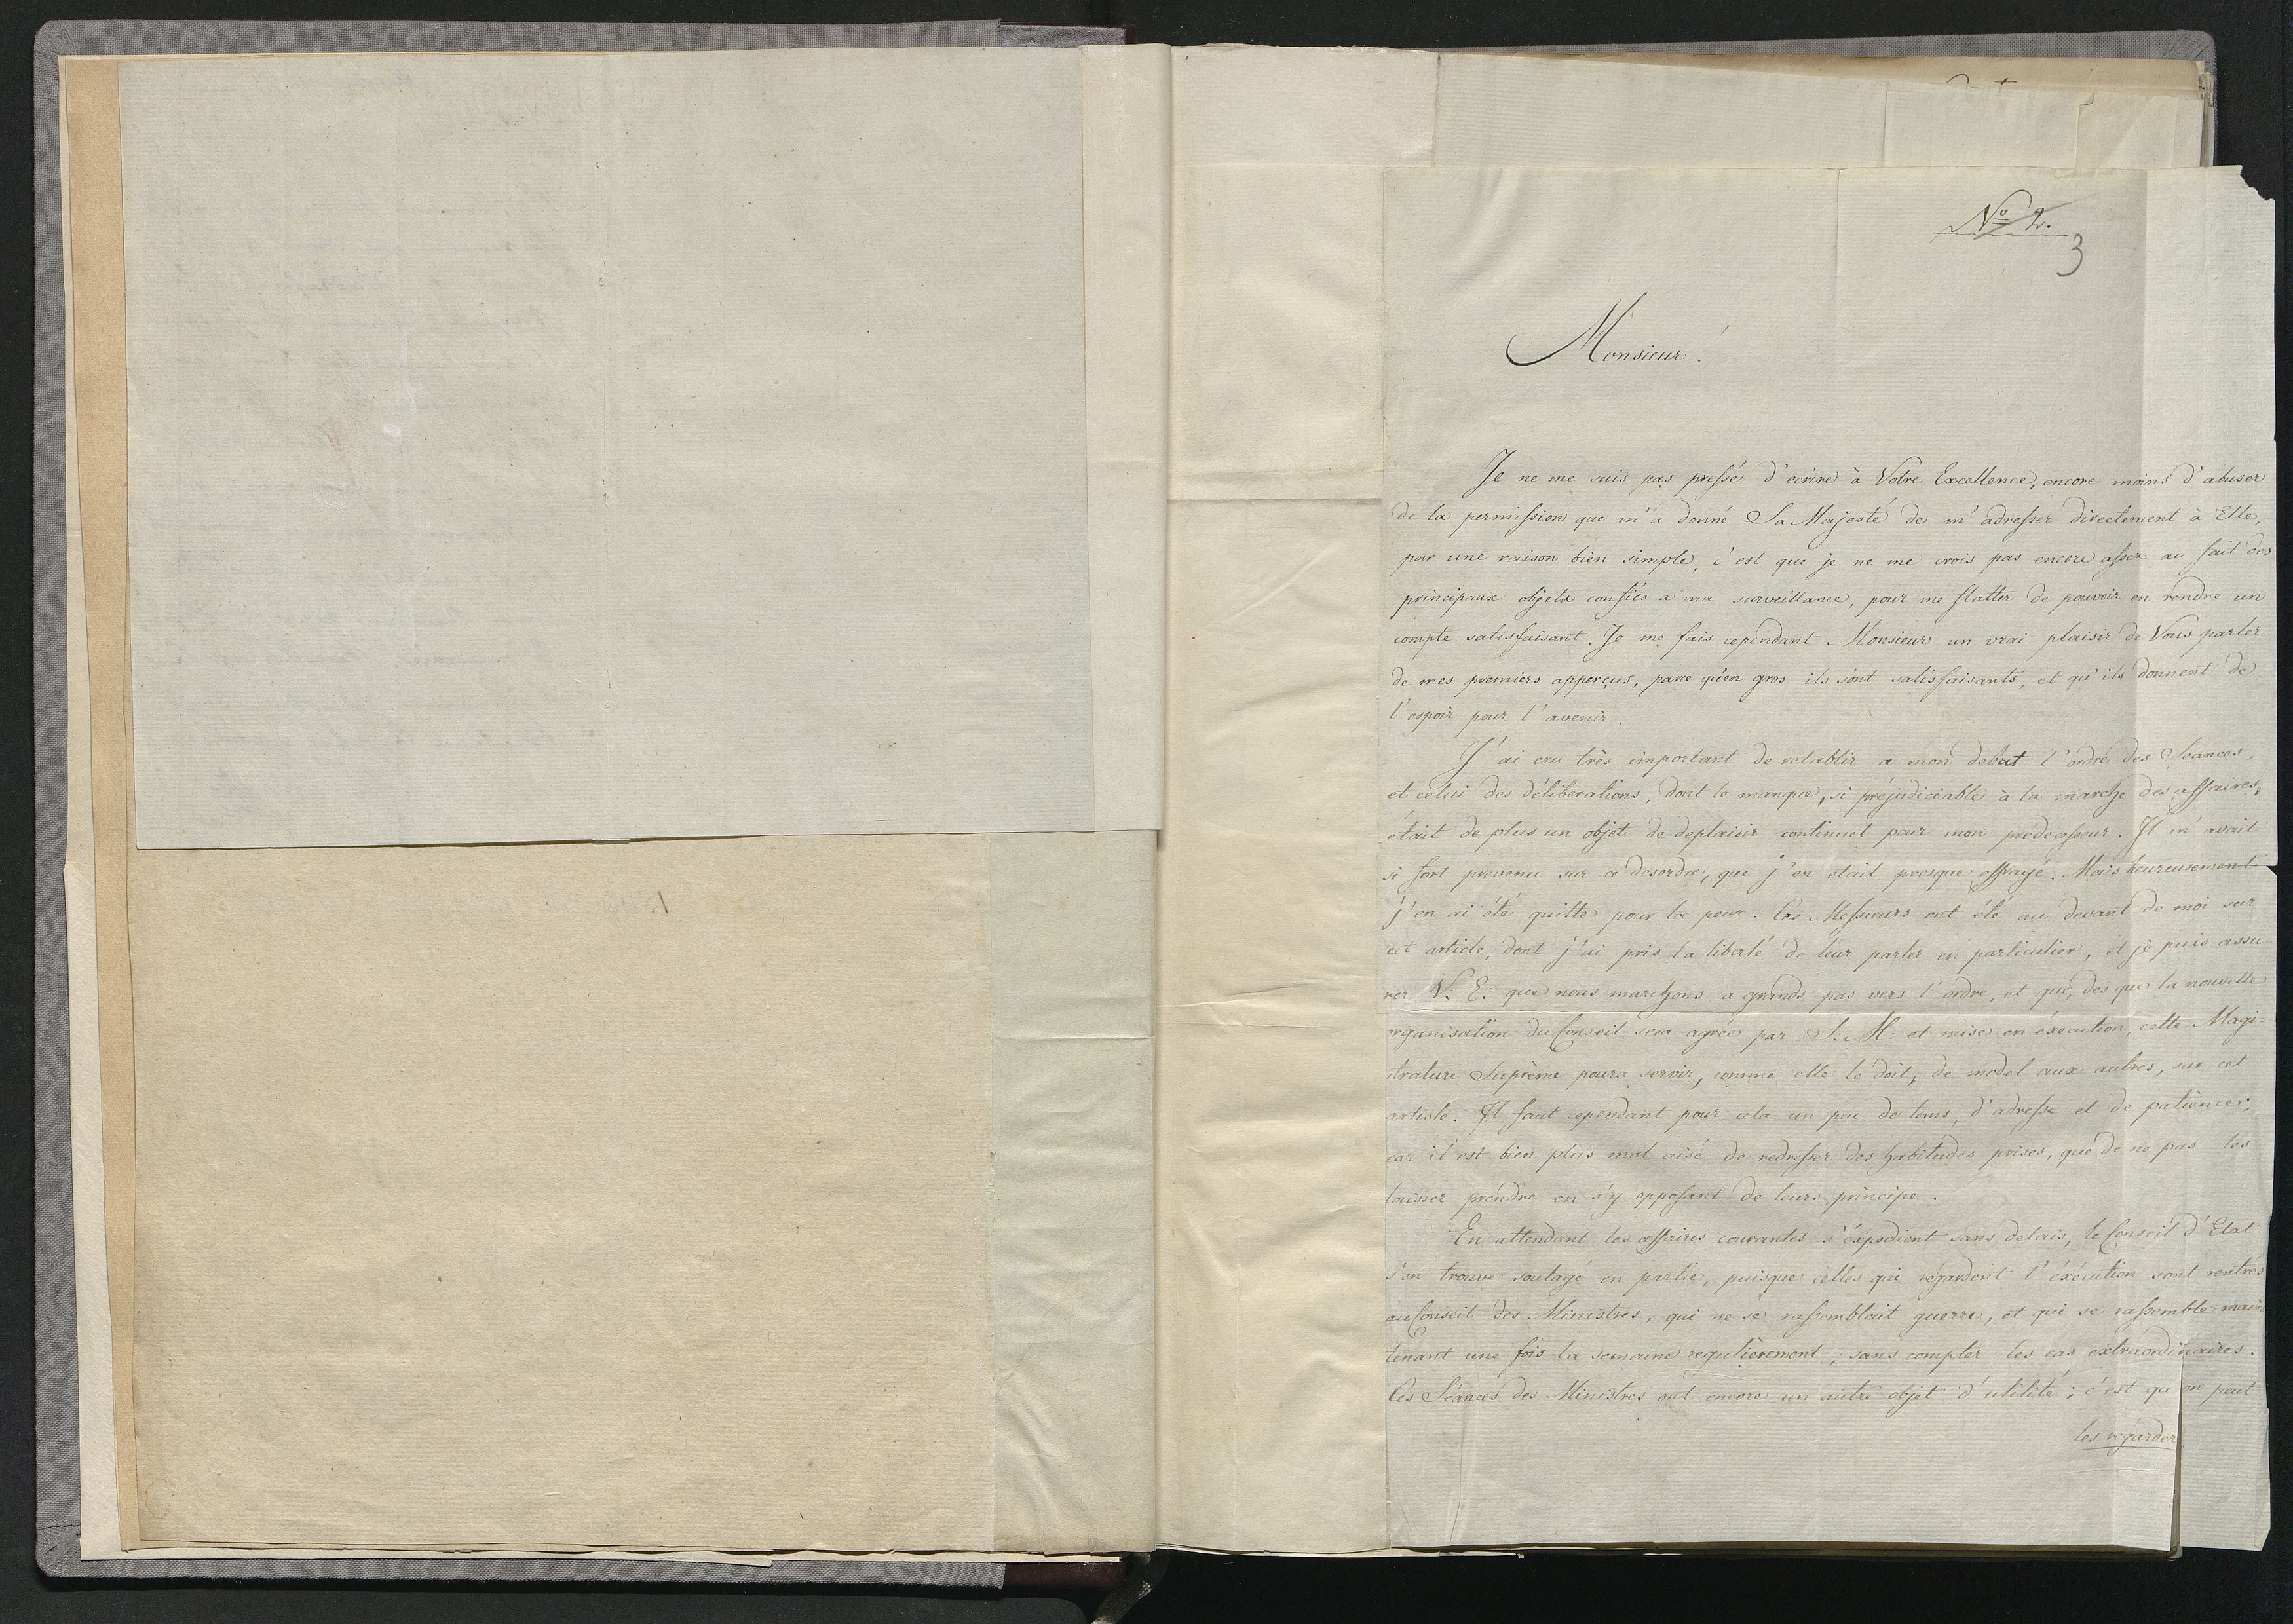 No 2.
3
Monsieur!
Je ne me suis pas pressé d'ecrire à Votre Excellence, encore moins d'abuser
de la permission que m'a donné Sa Majesté de m'adresser directement à Elle,
par une raison bien simple, c'est que je ne me crois pas encore assez au fait des
principaux objets confiés a ma surveillance, pour me flatter de pouvoir en rendre un
compte satisfaisant. Je me fais cependant Monsieur un vrai plaisir de Vous parler
de mes premiers apperçus, parce qu'en gros ils sont satisfaisants, et qu'ils donnent de
l'espoir pour l'avenir.
J'ai cru très important de retablir a mon debut l'ordre des Seances,
et celui des déliberations, dont le manque, si préjudiciable à la marche des affaires,
était de plus un objet de deplaisir continuel pour mon predecesseur. Il m'avait
si fort prevenu sur ce desordre, que j'en etait presque effrayé. Mais heureusement
j'en ai été quitte pour la peur. Ces Messieurs ont été au devant de moi sur
cet article, dont j'ai pris la liberté de leur parler en particulier, et je puis assu-
rer V: E: que nous marchons a grands pas vers l'ordre, et que, des que la nouvelle
organisation du Conseil sera agrée par S: M: et mise en éxecution, cette Magi-
strature Suprème poura servir, comme elle le doit, de model aux autres, sur cet
article. Il faut cependant pour cela un peu de tems, d'adresse et de patience;
car il est bien plus mal aisé de redresser des habitudes prises, que de ne pas les
laisser prendre en s'y opposant de leurs principe.
En attendant les affaires courantes s'éxpedient sans delais, le Conseil d'Etat
s'en trouve soulagé en partie, puisque celles qui régardent l'éxécution sont rentrés
au Conseil des Ministres, qui ne se rassembloit guerre, et qui se rassemble main
tenant une fois la semaine regulièrement, sans compter les cas extraordinaires.
Ces Séances des Ministres ont encore un autre objet d'utilité; c'est qu'on peut
les régarder